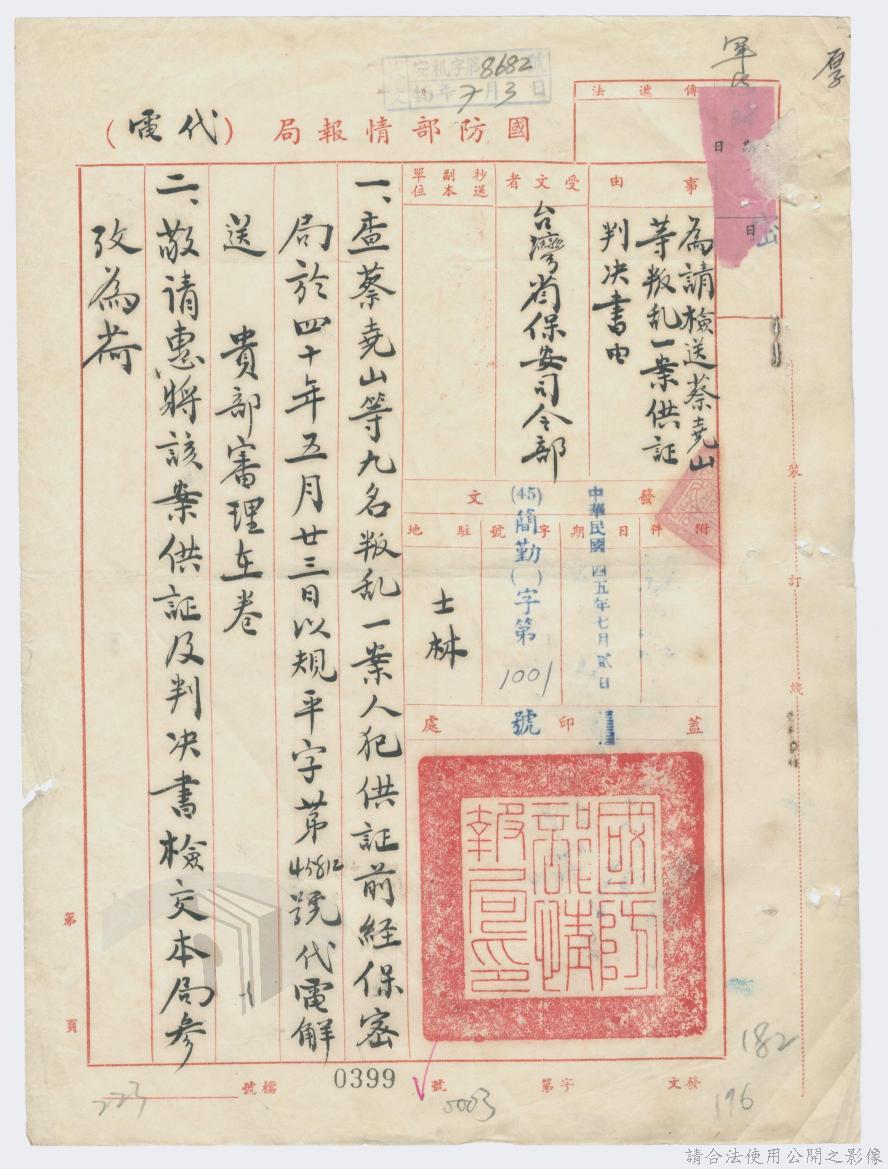 軍法
厚
安机字第8682號
45年7月3日
國防部情報局（代電）
傳遞法
密
日
日
事由
為請檢送蔡堯山
等叛乱一案供証
判决書由
受文者
台灣省保安司令部
抄送副本單位
發文
附件
日期
中華民國四五年七月貳日
字號
(45)簡勤( )字第1001號
駐地
士林
蓋印處
國防部情報局印
一、查蔡堯山等九名叛乱一案人犯供証前経保密
局於四十年五月廿三日以规平字苐45812號代電解
送　貴部審理在卷
二、敬请惠將該案供証及判决書檢交本局參
攷為荷
裝訂線
第頁
發文字第0003號
檔號
0399
223
182
196
請合法使用公開之影像